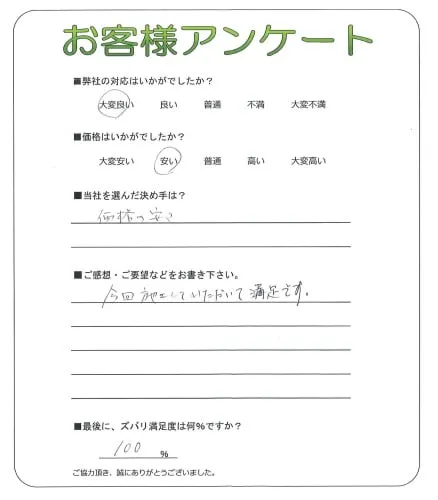 お客様アンケート
■弊社の対応はいかがでしたか？
大変良い 良い 普通 不満 大変不満
■価格はいかがでしたか？
大変安い 安い 普通 高い 大変高い
■当社を選んだ決め手は？
価格の安さ
■ご感想・ご要望などをお書き下さい。
今回施工していただいて満足です。
■最後に、ズバリ満足度は何％ですか？
100 ％
ご協力頂き、誠にありがとうございました。